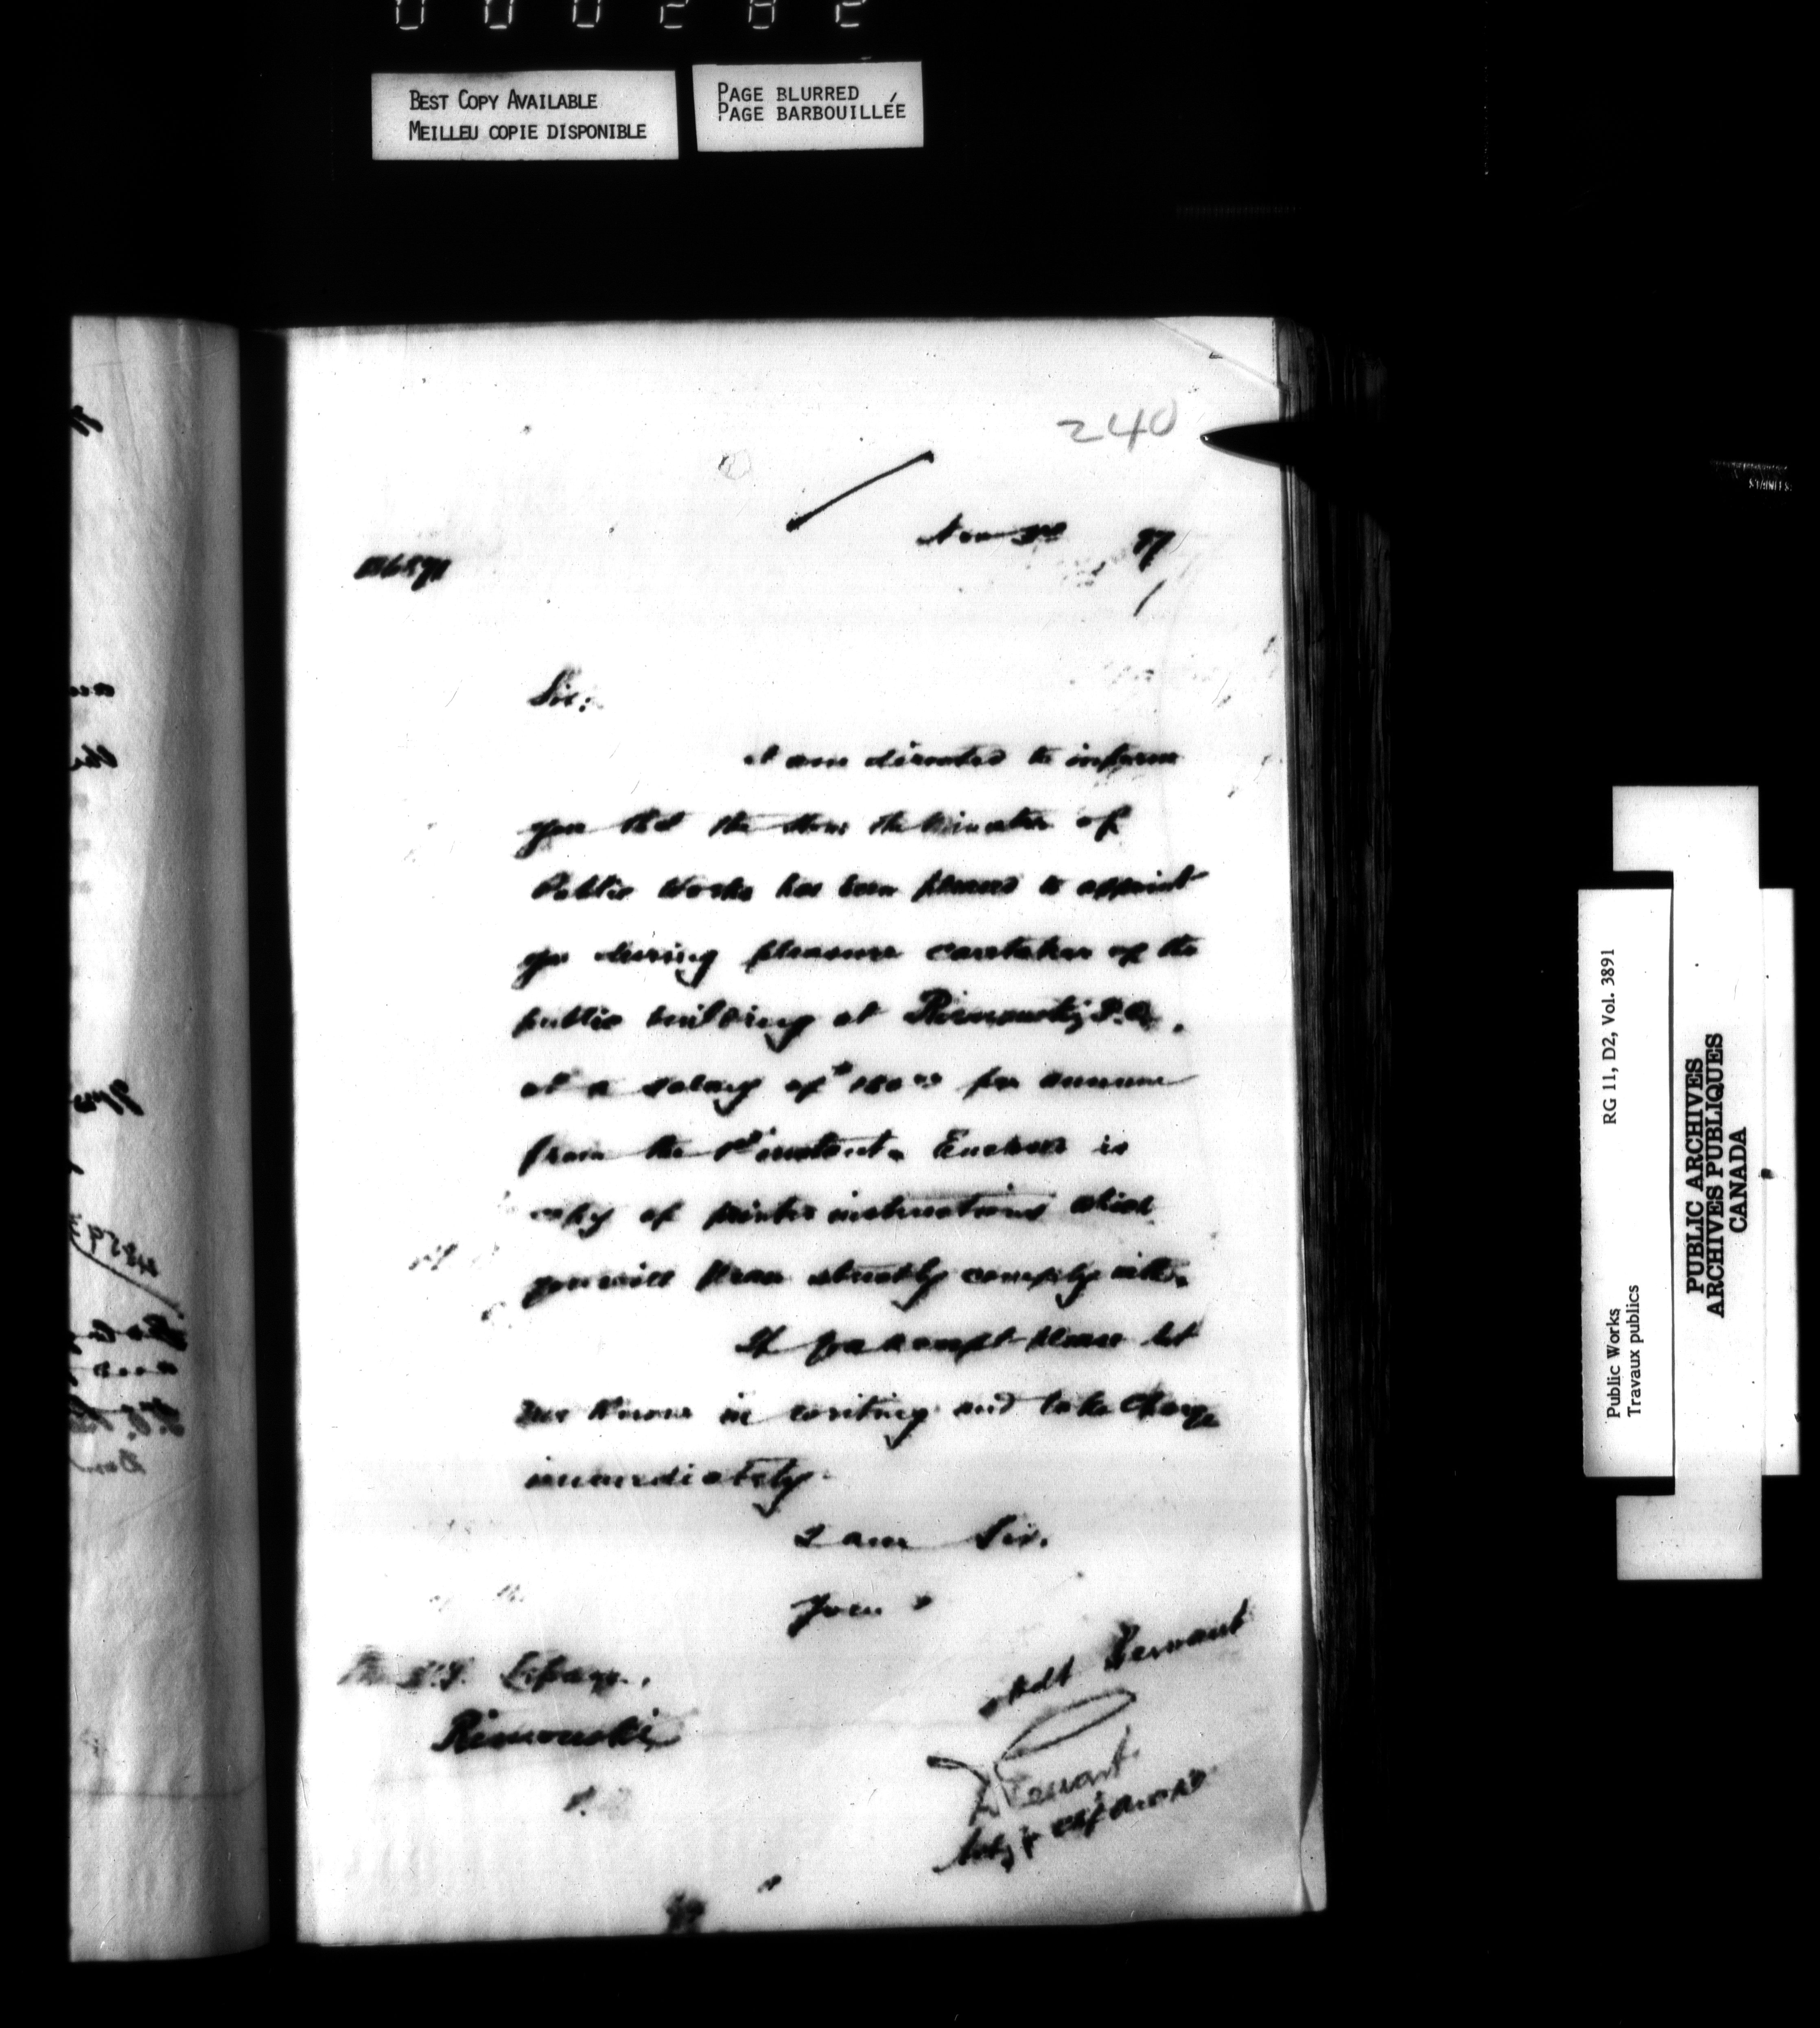 000282
BEST COPY AVAILABLE
MEILLEU COPIE DISPONIBLE
PAGE BLURRED
PAGE BARBOUILLÉE
240
Nov 3rd 97
Sir:
I am directed to inform
you that the Hon. the Minister of
Public Works has been pleased to appoint
you during pleasure caretaker of the
public building at Rimouski, P.Q.,
at a salary of $ per annum
from the 1st instant. Enclosed is
copy of printed instructions which
you will please strictly comply with.
If you accept please let
me know in writing and take charge
immediately.
I am Sir,
Your
obdt Servant
Lepage,
Rimouski
P.
RG 11, D2, Vol. 3891
Public Works
Travaux publics
PUBLIC ARCHIVES
ARCHIVES PUBLIQUES
CANADA